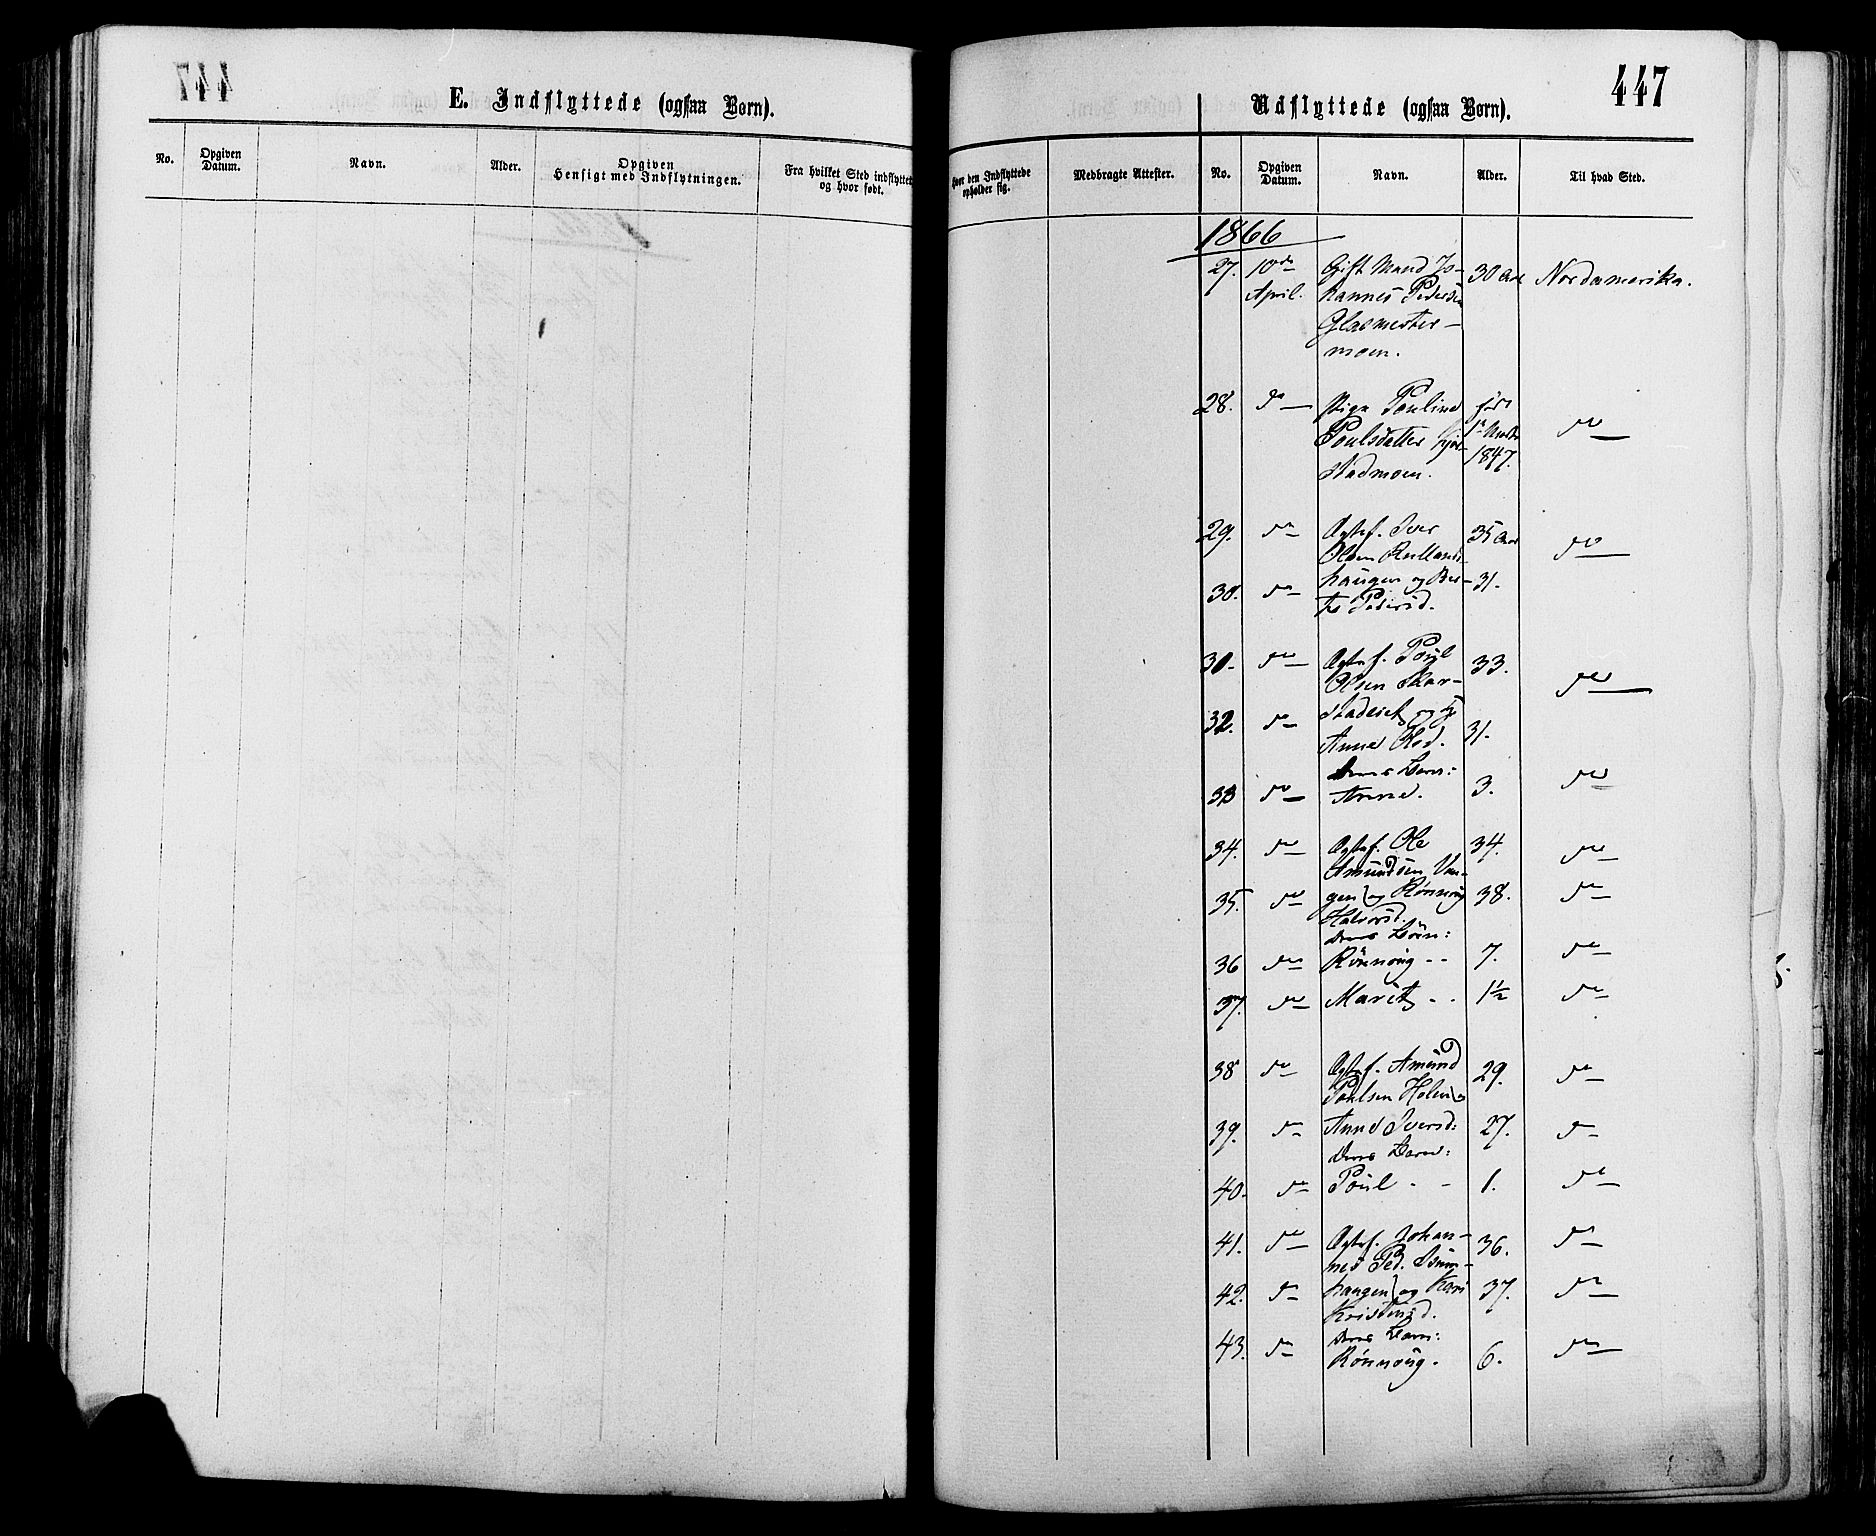 447
E. Indflyttede (ogsaa Børn).
No.
Opgiven Datum.
Navn.
Alder.
Opgiven Hensigt med Indflytningen.
Fra hvilket Sted indflyttet og hvor født.
447
Udflyttede (ogsaa Børn).
Hvor den Indflyttede opholder sig.
Medbragte Attester.
No.
Opgiven Datum.
Navn.
Alder.
Til hvad Sted.
1866
27. 10de Gift Mand Jo- 30 Aar Nordamerika.
April. hannes Pedersen
Glasmester-
moen.
28. do Pige Pouline født
Poulsdatter 1ste do
stadmoen. 1847.
29. do Ægtef. Iver 35 Aar
Olsen do
30. do haugen og Ber- 31.
the Pedersd.
31. do Ægtef. Poul 33.
Olsen Skar- do
32. do stadeiet og
Anne Olsd. 31.
Deres Barn:
33 do Anne. 3. do
34. do Ægtef. Ole 34. do
Amundsen Van-
35. do gen og Rønnoug 38. do
Halvorsd.
Deres Børn:
36 do Rønnoug - - 7. do
37. do Marit - - 1½ do
38 do Ægtef. Amund 29. do
Poulsen Holen
39. do Anne Iversd: 27. do
Deres Barn:
40. do Poul - - 1. do
41. do Ægtef. Johan- 36. do
nes Ped.
42. do haugen og Kari 37. do
Kristensd.
Deres Barn:
43. do Rønnoug. 6. do